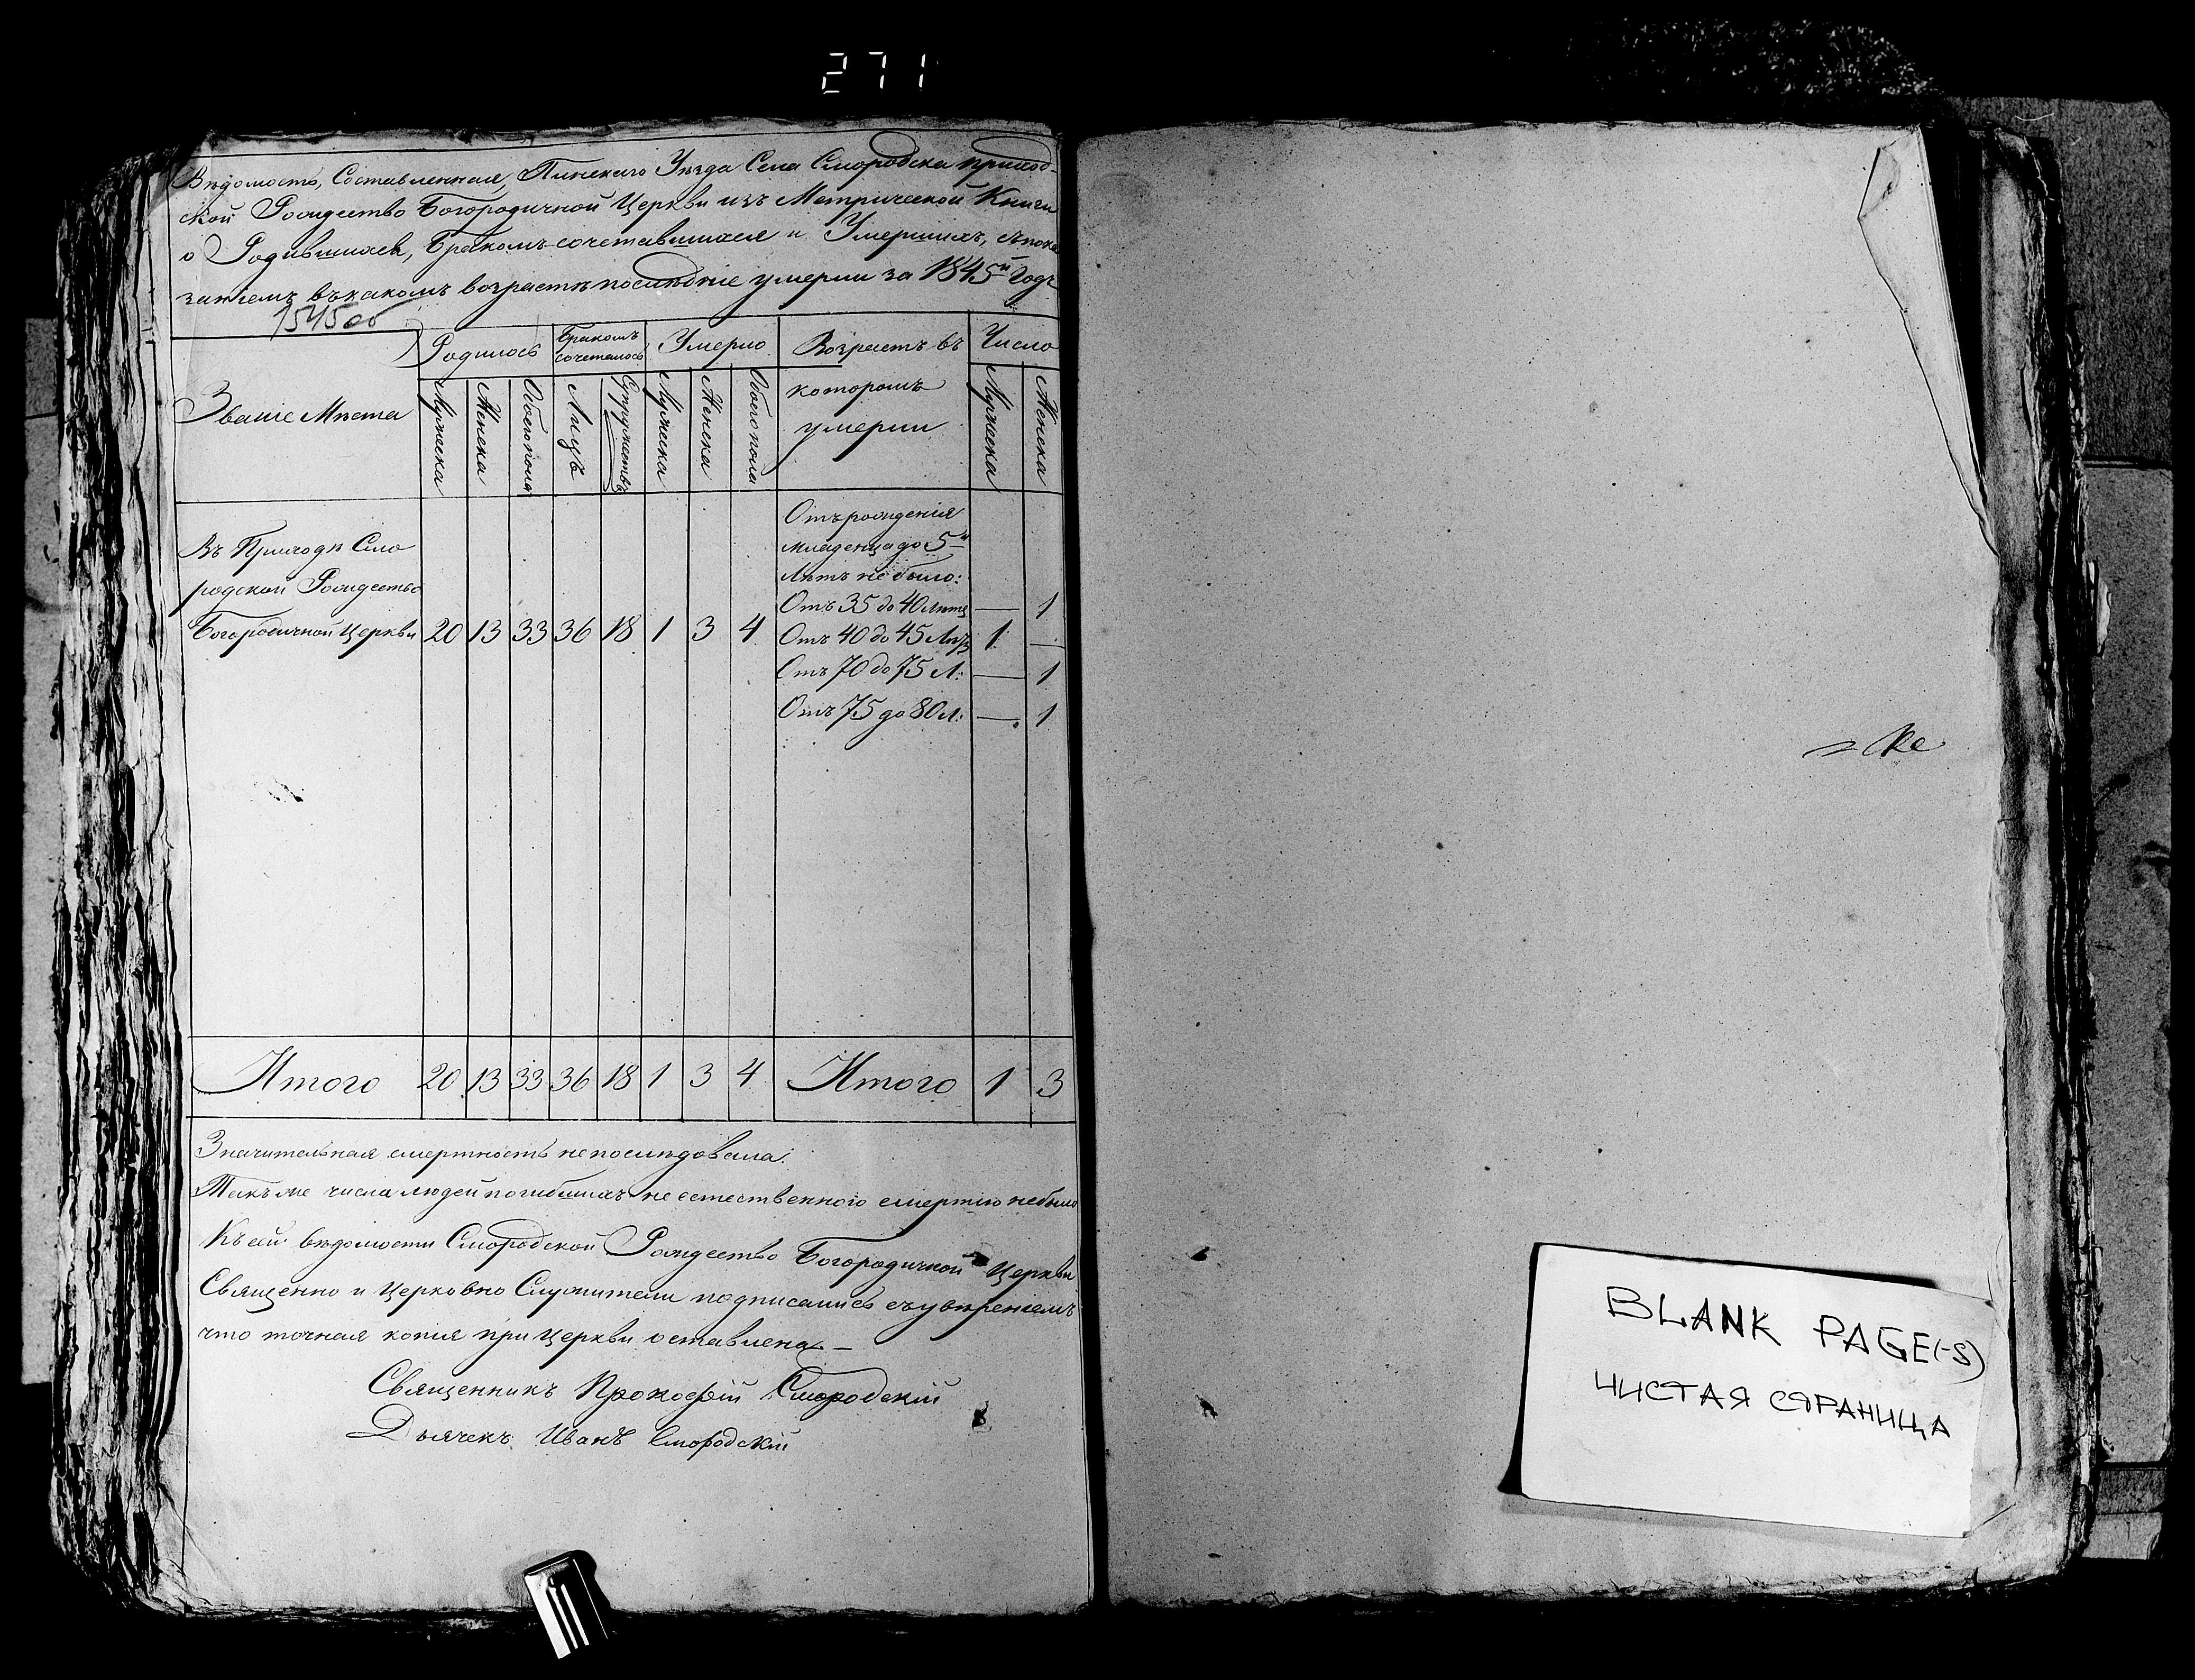 271
Вѣдомость, Составленная, Пинскаго Уѣзда Села Смородска приход-
ской Рождество Богородичной Церкви изъ Метрической Книги
о Родившихся, Бракомъ сочетавшихся и Умершихъ, съ пока
заніемъ въ какомъ возрастѣ послѣдніе умерли за 1845й Годъ
1545об
Родилось Бракомъ сочеталось Умерло Возрастъ въ Число
Званіе Мѣста Мужеска Женска Обоего пола Лицъ Супружествъ Мужеска Женска Обоего пола которомъ умерли Мужеска Женска
Отъ рожденія
младенца до 5и
Лѣтъ не было:
Въ Приходѣ Смо
родской Рождество
Отъ 35 до 40 Лѣтъ — 1
Богородичной Церкви 20 13 33 36 18 1 3 4 Отъ 40 до 45 Лѣтъ 1 —
Отъ 70 до 75 Л: — 1
Отъ 75 до 80 Л: — 1
Итого 20 13 33 36 18 1 3 4 Итого 1 3
Значительная смертность непоследовала:
Такъ же числа людей погибшихъ не естественного смертію небыло
Къ сей вѣдомости Смородской Рождество Богородичной Церкви
Священно и Церковно Служители подписались съ увѣреніемъ
что точная копія при Церкви оставлена —
Священникъ Прокофій Смородскій
Дьячекъ Иванъ Смородскій
BLANK PAGE(-S)
ЧИСТАЯ СТРАНИЦА